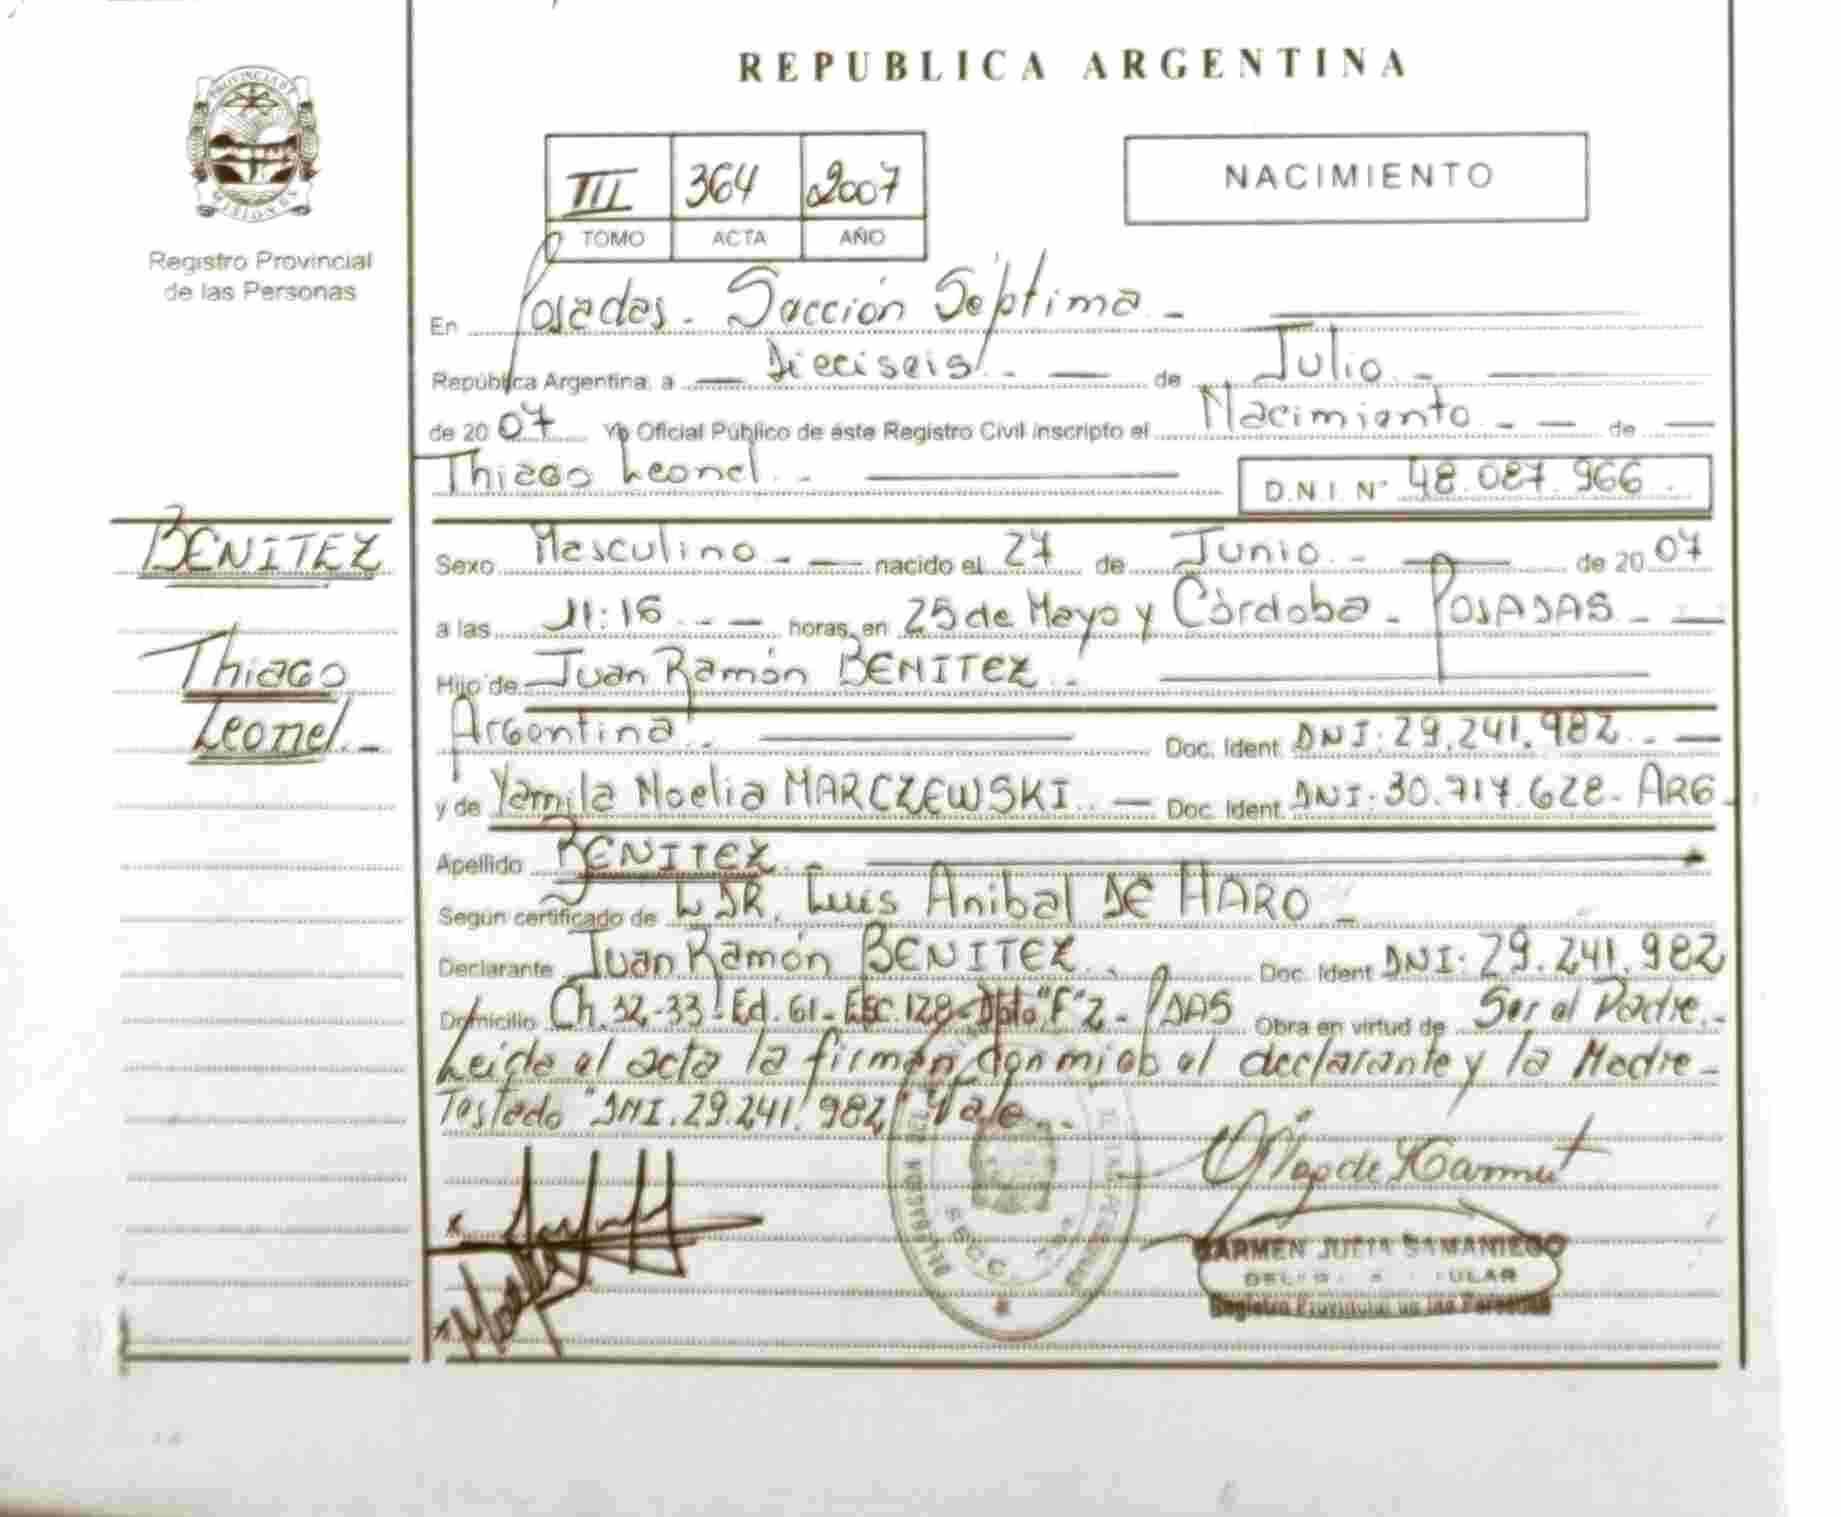 REPUBLICA ARGENTINA
PROVINCIA DE
MISIONES
Registro Provincial
de las Personas
III 364 2007
TOMO ACTA AÑO
NACIMIENTO
En Posadas - Sección Séptima -
República Argentina, a Dieciseis - de Julio -
de 2007 Yo Oficial Público de este Registro Civil inscripto el Nacimiento - de
Thiago Leonel - D.N.I. N° 48.087.966.
BENITEZ
Thiago
Leonel. -
Sexo Masculino - nacido el 27 de Junio. - de 2007
a las 11:16 - horas, en 25 de Mayo y Córdoba - POSADAS -
Hijo de Juan Ramón BENITEZ. -
Argentina. Doc. Ident. DNI: 29.241.982. -
y de Yamila Noelia MARCZEWSKI. - Doc. Ident. DNI: 30.717.628 - ARG -
Apellido BENITEZ. -
Según certificado de DR. Luis Anibal DE HARO -
Declarante Juan Ramón BENITEZ. Doc. Ident. DNI: 29.241.982
Domicilio Ch. 32-33 - Ed. 61 - Esc. 128 - Dpto "F" 2 - PDAS Obra en virtud de Ser el Padre. -
Leida el acta la firman con migo el declarante y la Madre -
Testado "DNI. 29.241.982" Vale.
CARMEN JULIA SAMANIEGO
Registro Provincial de las Personas